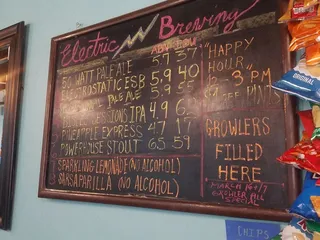 Electric Brewing
ABV IBU
60 WATT PALE ALE 5.7 37
ELECTROSTATIC ESB 5.9 40
PALE ALE 5.5
SESSIONS IPA 4.9 65
PINEAPPLE EXPRESS 4.7 17
POWERHOUSE STOUT 6.5 59
SPARKLING LEMONADE (NO ALCOHOL)
SARSAPARILLA (NO ALCOHOL)
"HAPPY
HOUR"
3 PM
$1 OFF PINTS
GROWLERS
FILLED
HERE
CHIPS